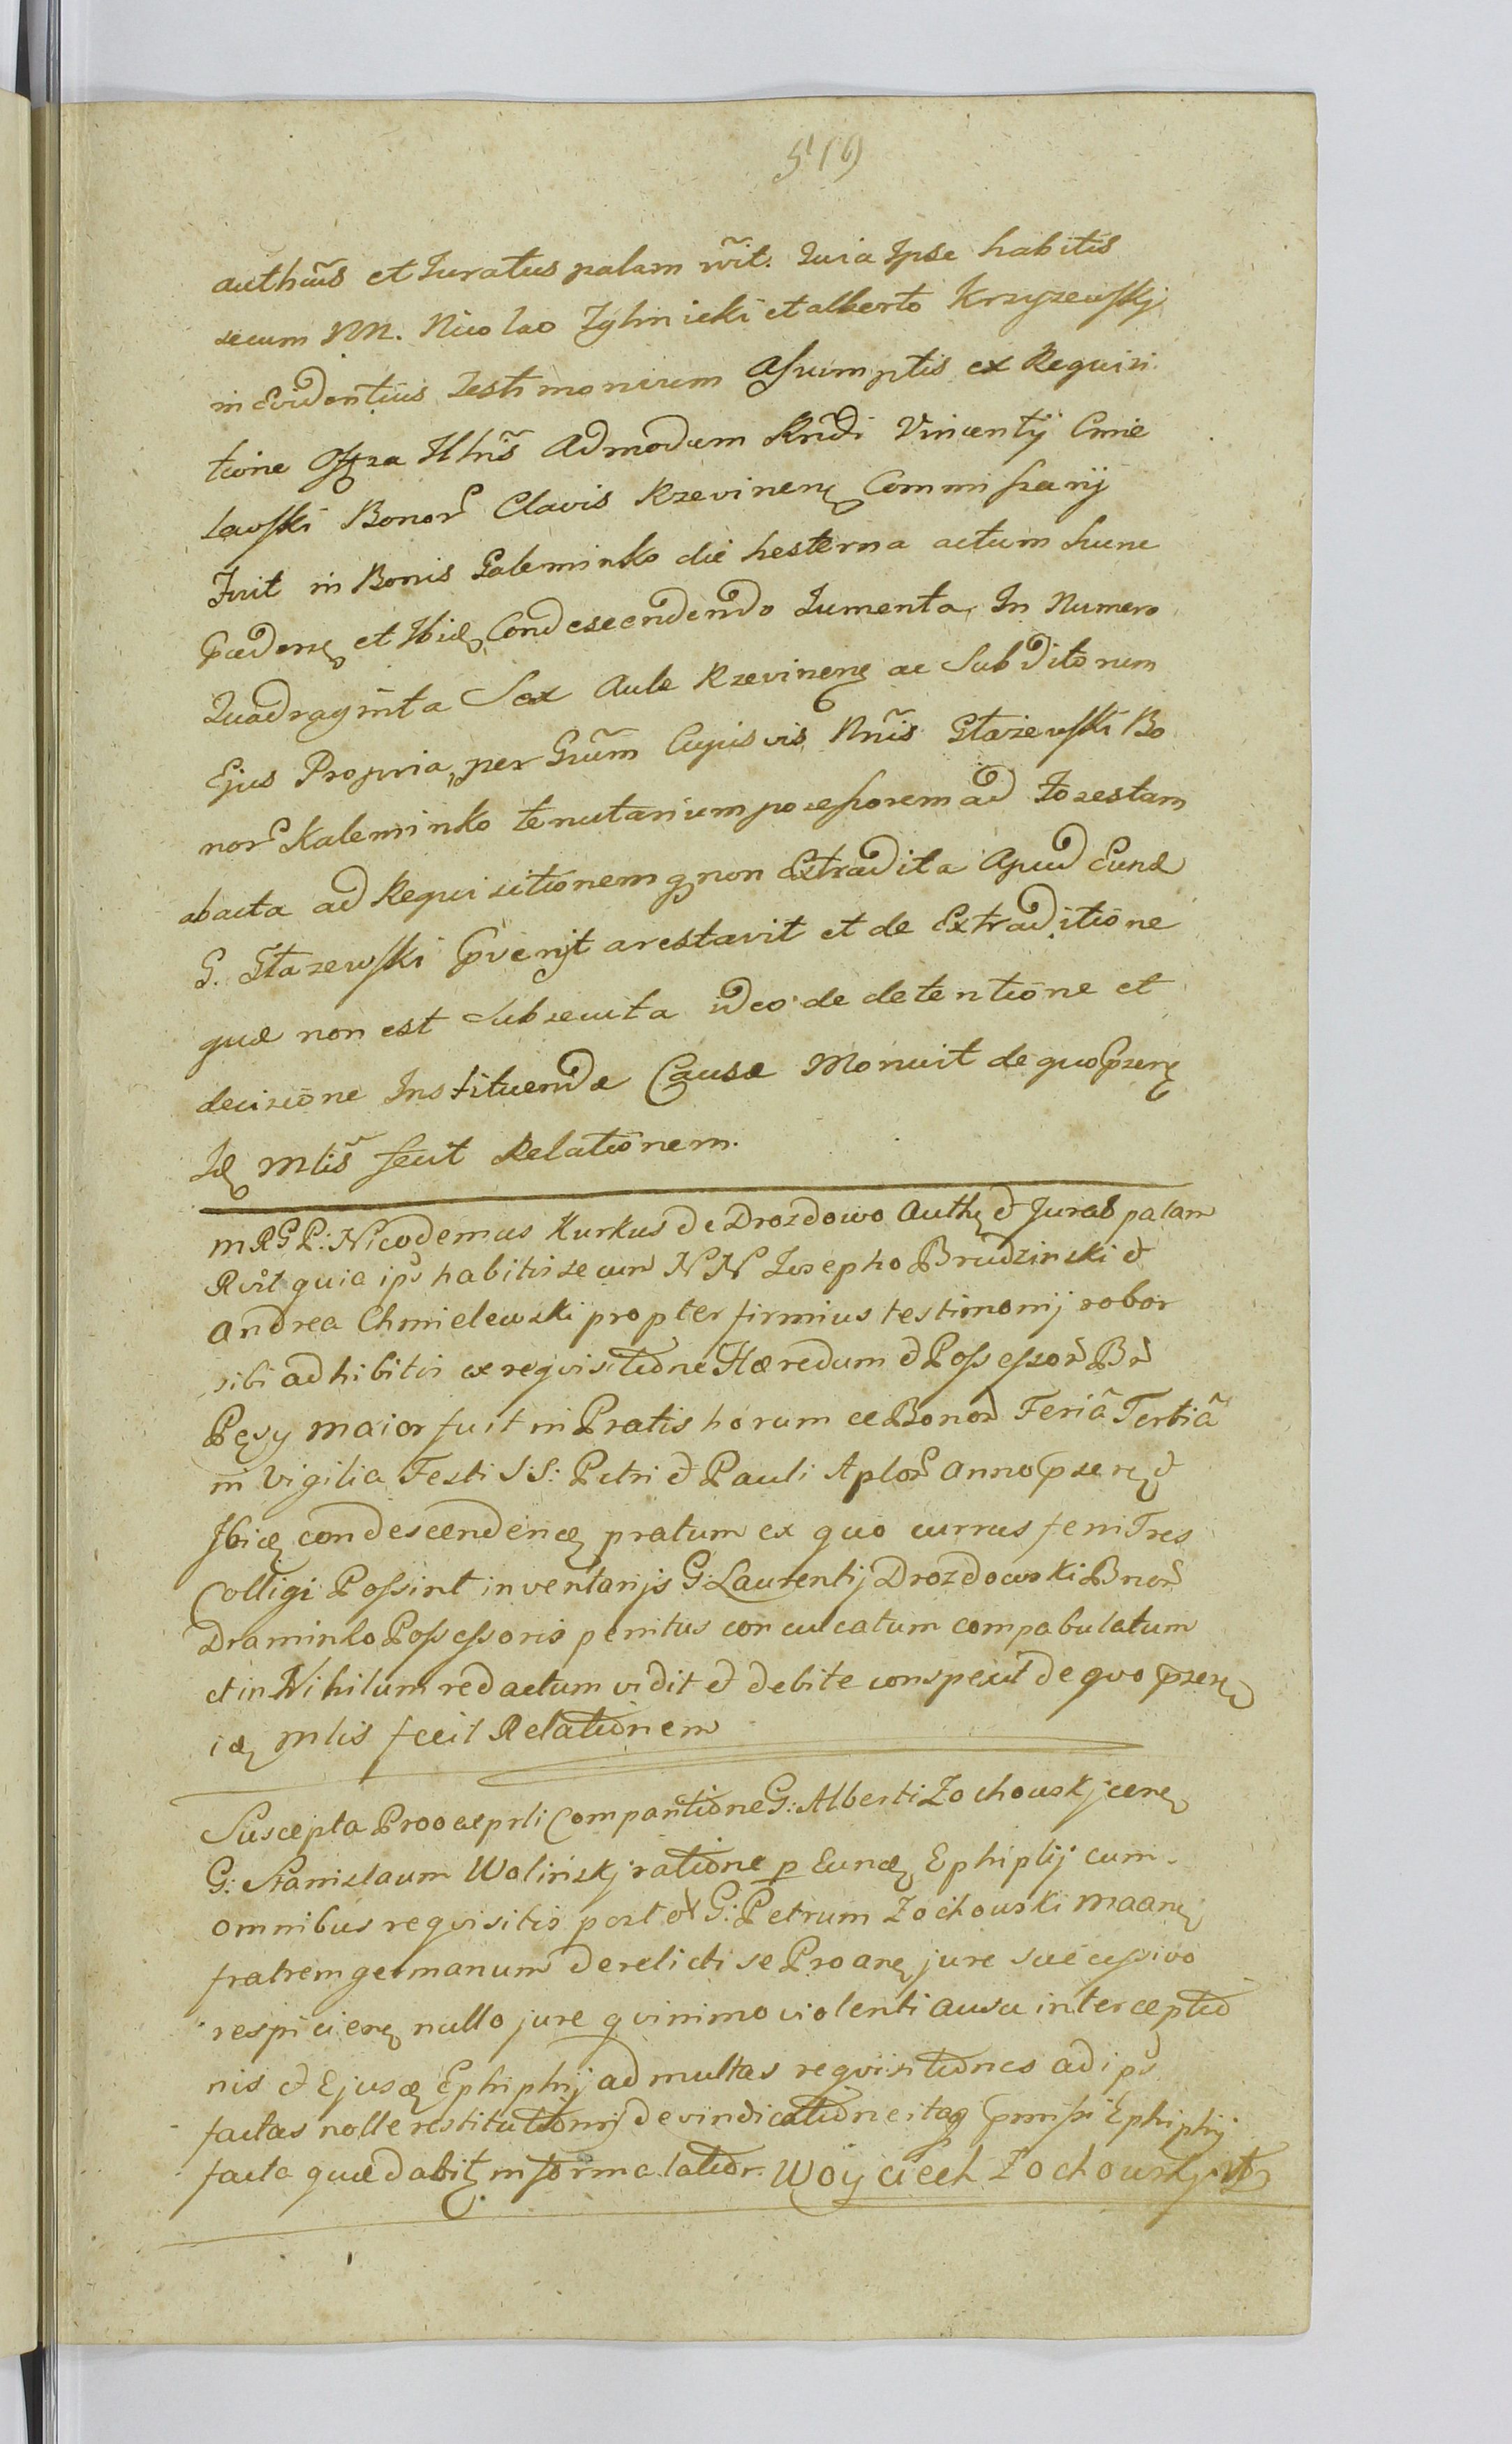 519
authūs et Iuratus palam rr̃it. Quia Ipse habitis
secum NN. Nicolao Zglinicki et alberto Krzyzewskj
in Evidentius Testimonium assumptis ex Requisi
tione Illris̃ Admodum Rñdi Vincentÿ Cmie
lewski Bonor Clavis Rzevinen Commissarij
Fuit in Bonis Galeminko die hesterna actum hunc
et Ibid Condescendendo Iumenta, In Numero
Quadraginta Sex Aulæ Rzevinen ac Subditorum
Ejus Propria, per Gñum Cujusvis Nñis Stazewski Bo
nor Kaleminko tenutarium possessorem ad Forestam
abacta ad Requisitionem q non Extradita Apud Eund
G. Stazewski arestavit et de Extraditione
quæ non est Subsecuta ideo de detentione et
decisione Instituendæ Causæ Monuit de quo
Id Mlis̃ fecit Relationem.
MRGL: Nicodemus Kurkus de Drozdowo Auth et Jurat palam
Rvit quia ips habitis secum NN Josepho Brudzinski et
Andrea Chmielewski propter firmius testimonij robor
sibi adhibitis ex reqvisitione Hæredum et Possessor Br
Pęsy maior fuit in Pratis horum ce Bonor Feriã Tertiã
in Vigilia Festi S:S: Petri et Pauli Aplor Anno præsen et
Ibid condescenden pratum ex quo currus feni Tres
Colligi Possint inventarijs G: Laurentij Drozdowski Bnor
Draminko Possessoris penitus conculcatum compabulatum
et in Nihilum redactum vidit et debite conspexit de qvo præsen
id Mlis fecit Relationem
Suscepta Pro Comparitione G: Alberti Zochowskj cen
G: Stanislaum Wolinskj ratione p Eund Ephiplij cum
omnibus reqvisitis post ol G: Petrum Zochowski
fratrem germanum derelicti se Proan jure successivo
respicien nullo jure qvinimo violenti ausu interceptio
nis et Ejusd Ephiphij ad multas reqvisitiones ad ips
factas nolle restitutionij de vindicatione itaq præmissi Ephiphij
facta quæ dabit in forma lation. Woyciech Zochowskj